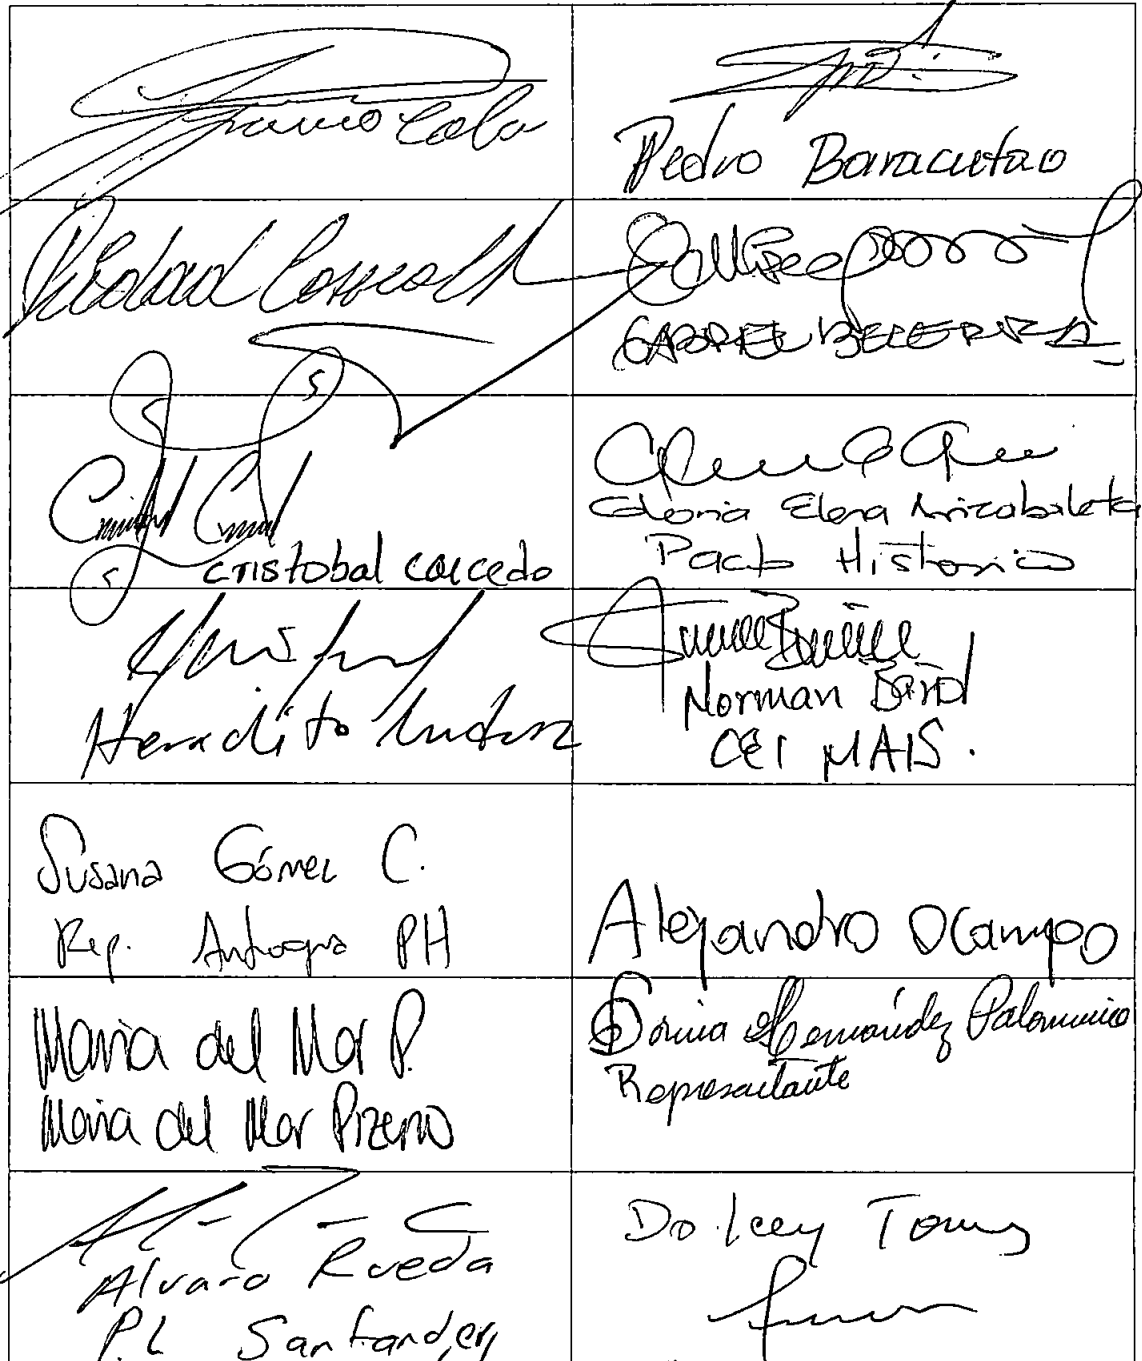 Pedro Baracutao
Piedad Correal
GABRIEL BECERRA
cristobal caicedo
Gloria Elena Arizabaleta
Pacto Historico
Heraclito
Norman Bañol
CEI MAIS.
Susana Gómez C.
Rep. Antioquia PH
Alejandro Ocampo
Maria del Mar P.
Maria del Mar Pizarro
Dorina Hernández Palomino
Representante
Alvaro Rueda
P.L Santander
Dolcey Torres